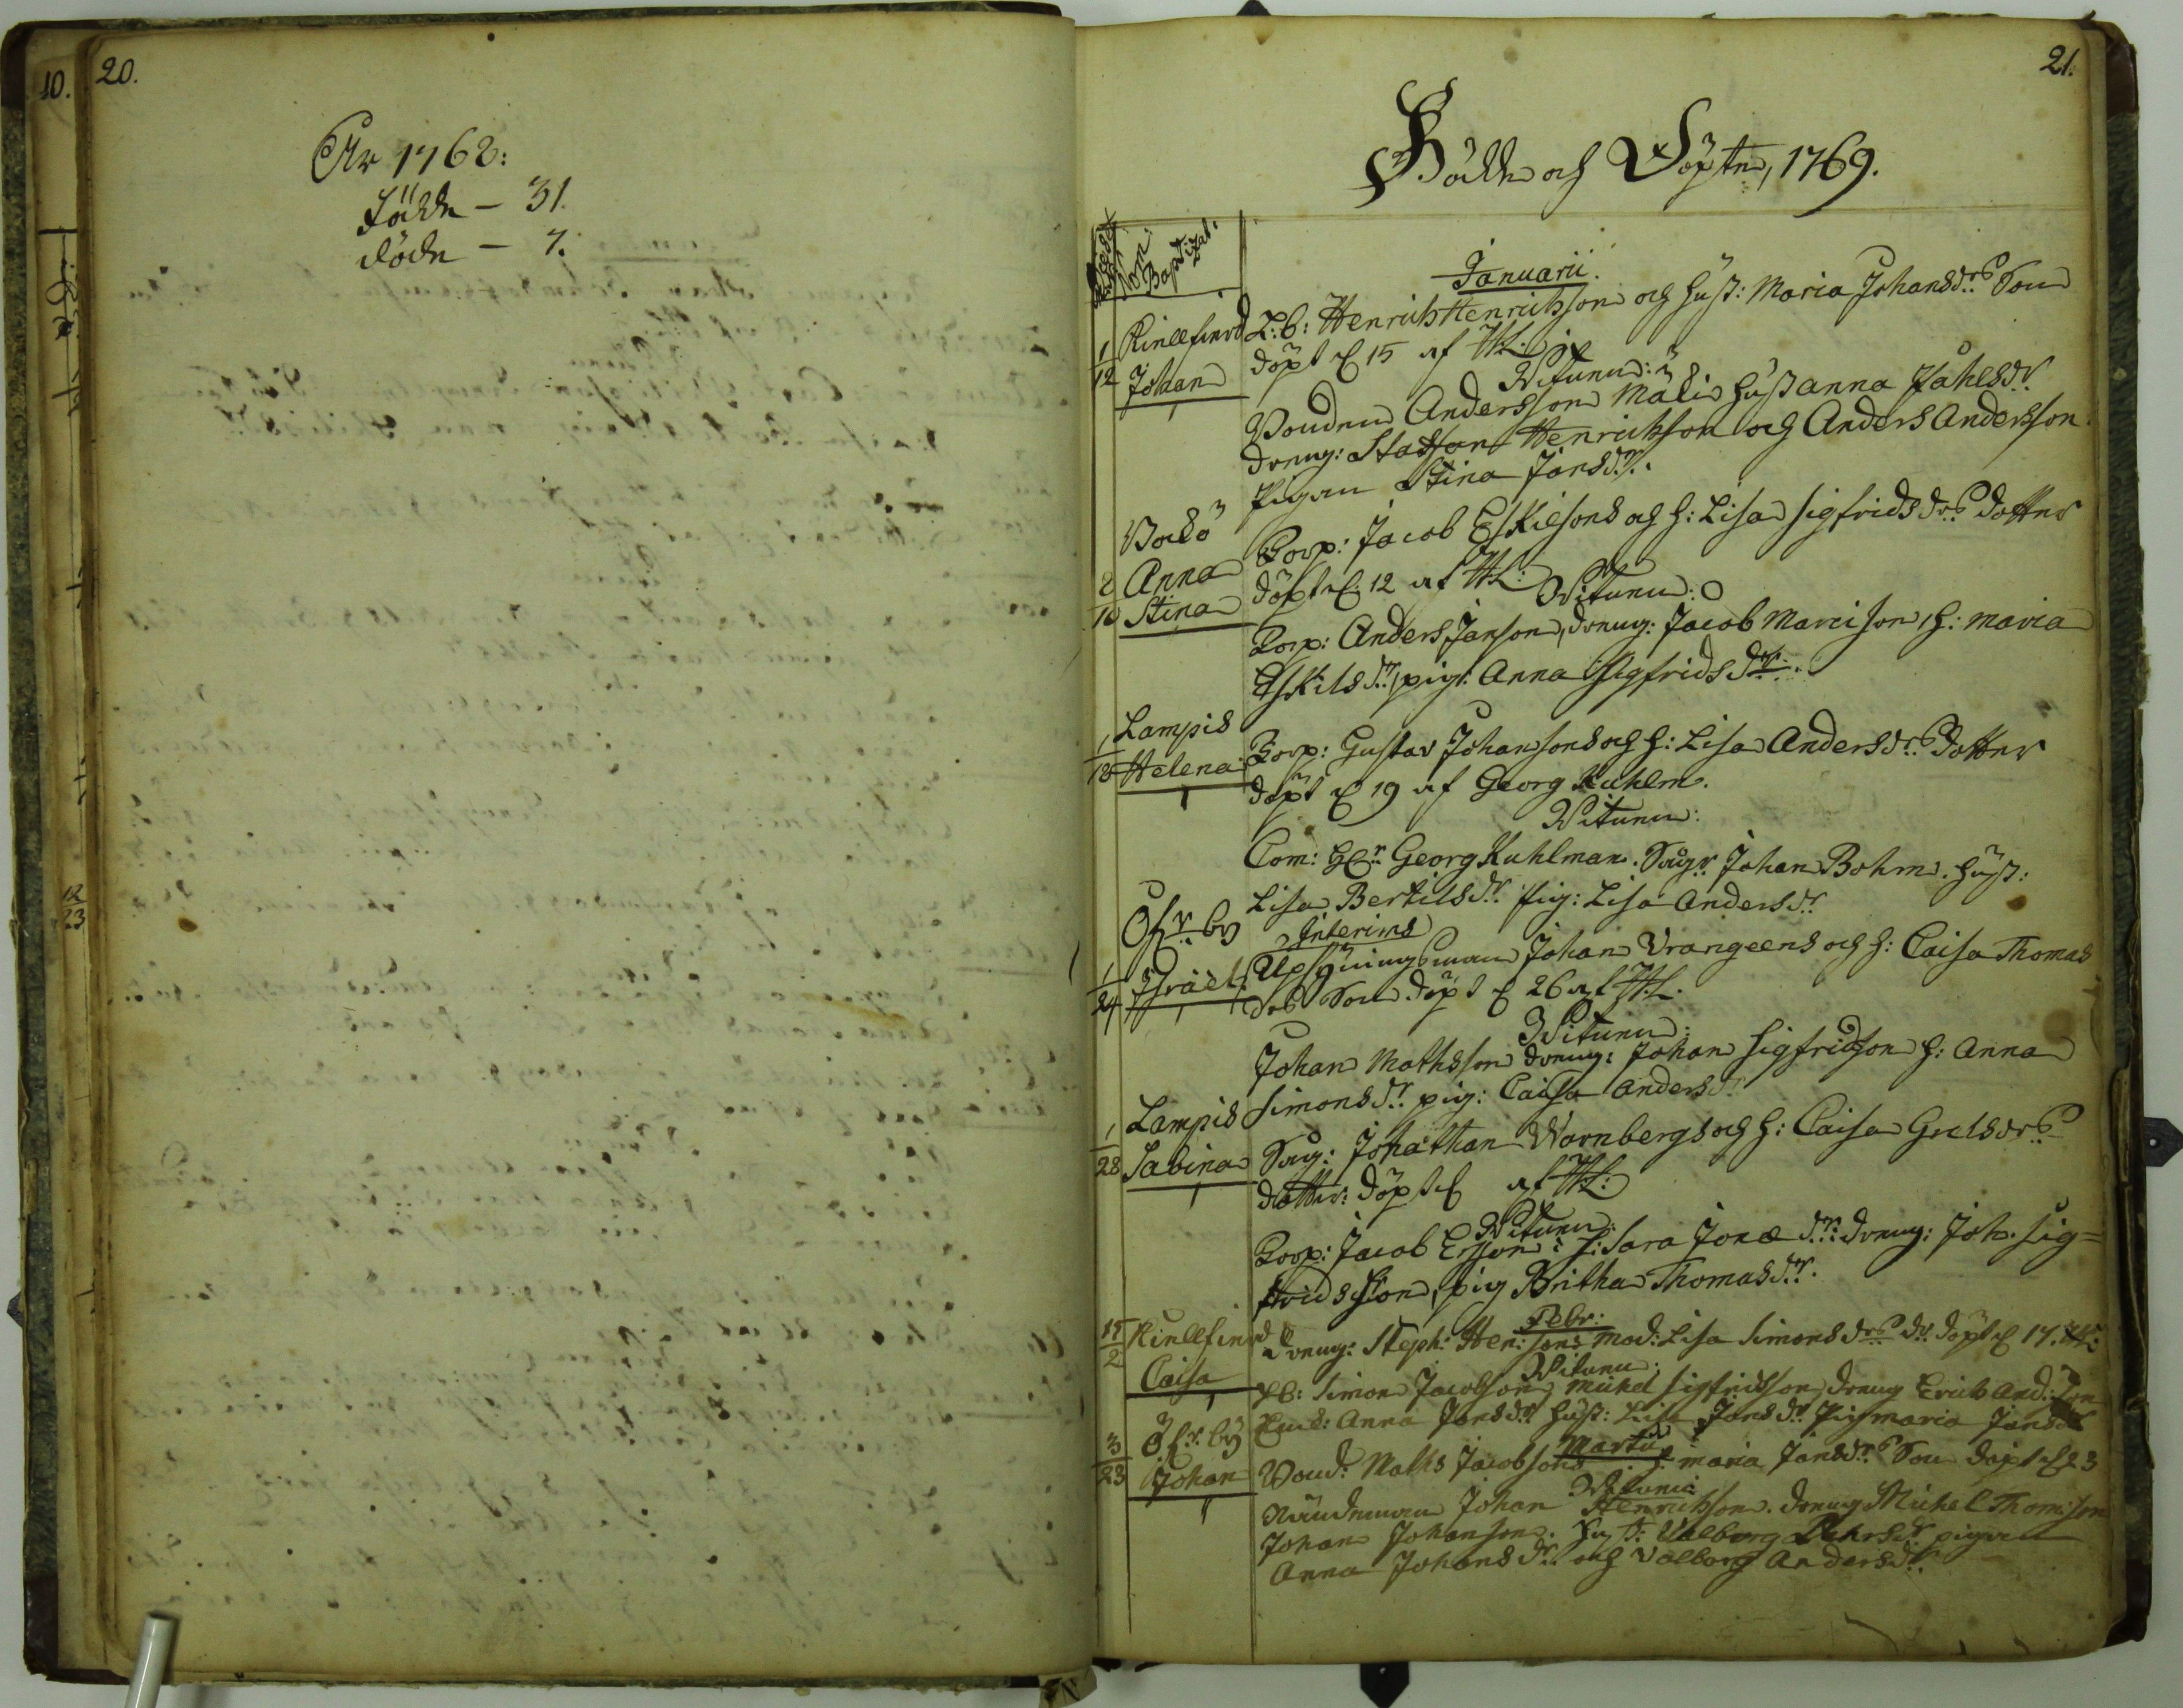 10.
20.
År 1768:
Födde – 31.
döde – 7.
12
23
21.
Födde och Döpte, 1769.
Nom: Baptizat:
Januarii.
1
12
Kiellfierd
Johan
L:b: Henrich Henrichsson och hust: Maria Johansdrs Son
döpt d 15 af HL:
Witnen:
Bonden Andersson Matts hust Anna Påhlsdr
dreng: Staffan Henrichsson och Anders Andersson
Pigan Stina Jansdr.
Bockö
2
10
Anna
Stina
Torp: Jacob Eskilsons och h: Lisa Sigfridsdrs dotter
döpt d. 12 af HL:
Witnen:
Torp: Anders Janson, dreng: Jacob Marcison, h: Maria
Eskilsdr, pig: Anna Sigfridsdr.
Lampis
1
18
Helena
Torp: Gustav Johansons och h: Lisa Andersdrs Dotter
döpt d 19 af Georg Kuhlm.
Witnen:
Com: Hr Georg Kuhlman. Johan Bohm. hust:
Lisa Bertilsdr. Pig: Lisa Andersdr
Öfr by
1
24
Israel
Interims
Upsyningsman Johan Vrangeens och h: Caisa Thomas
drs Son döpt d 26 af HL.
Witnen:
Johan Mathsson dreng: Johan Sigfridson h: Anna
Simonsdr. pig: Caisa Andersdr
Lampis
1
28
Sabina
Jonathan Warnbergs och h: Caisa Grelsdrs
dotter: döpt d af HL:
Witnen:
Torp: Jacob Ersson: h: Sara Jonæ dr: dreng: Joh. Sig=
fridsson, pig Britha Thomasdr.
Febr:
15
2
Kiellfierd
Caisa
Dreng: Steph: Hen:sons mod: Lisa Simonsdrs dr. döpt d 17. HL:
Witnen:
Simon Jacobson, Michel Sigfridsson, dreng Erich And:son
Anna Jansdr hust: Lisa Jansdr. Pig Maria Jansdr
Martii
3
23
Öfr. by
Johan
Bond: Maths Jacobsons h: Maria Jansdrs Son döpt d 23
Witnen:
Nämdeman Johan Henrichsson. dreng Michel Thomison
Johan Johanson. hust: Valborg Pehrsdr pigan
Anna Johansdr och Valborg Andersdr.